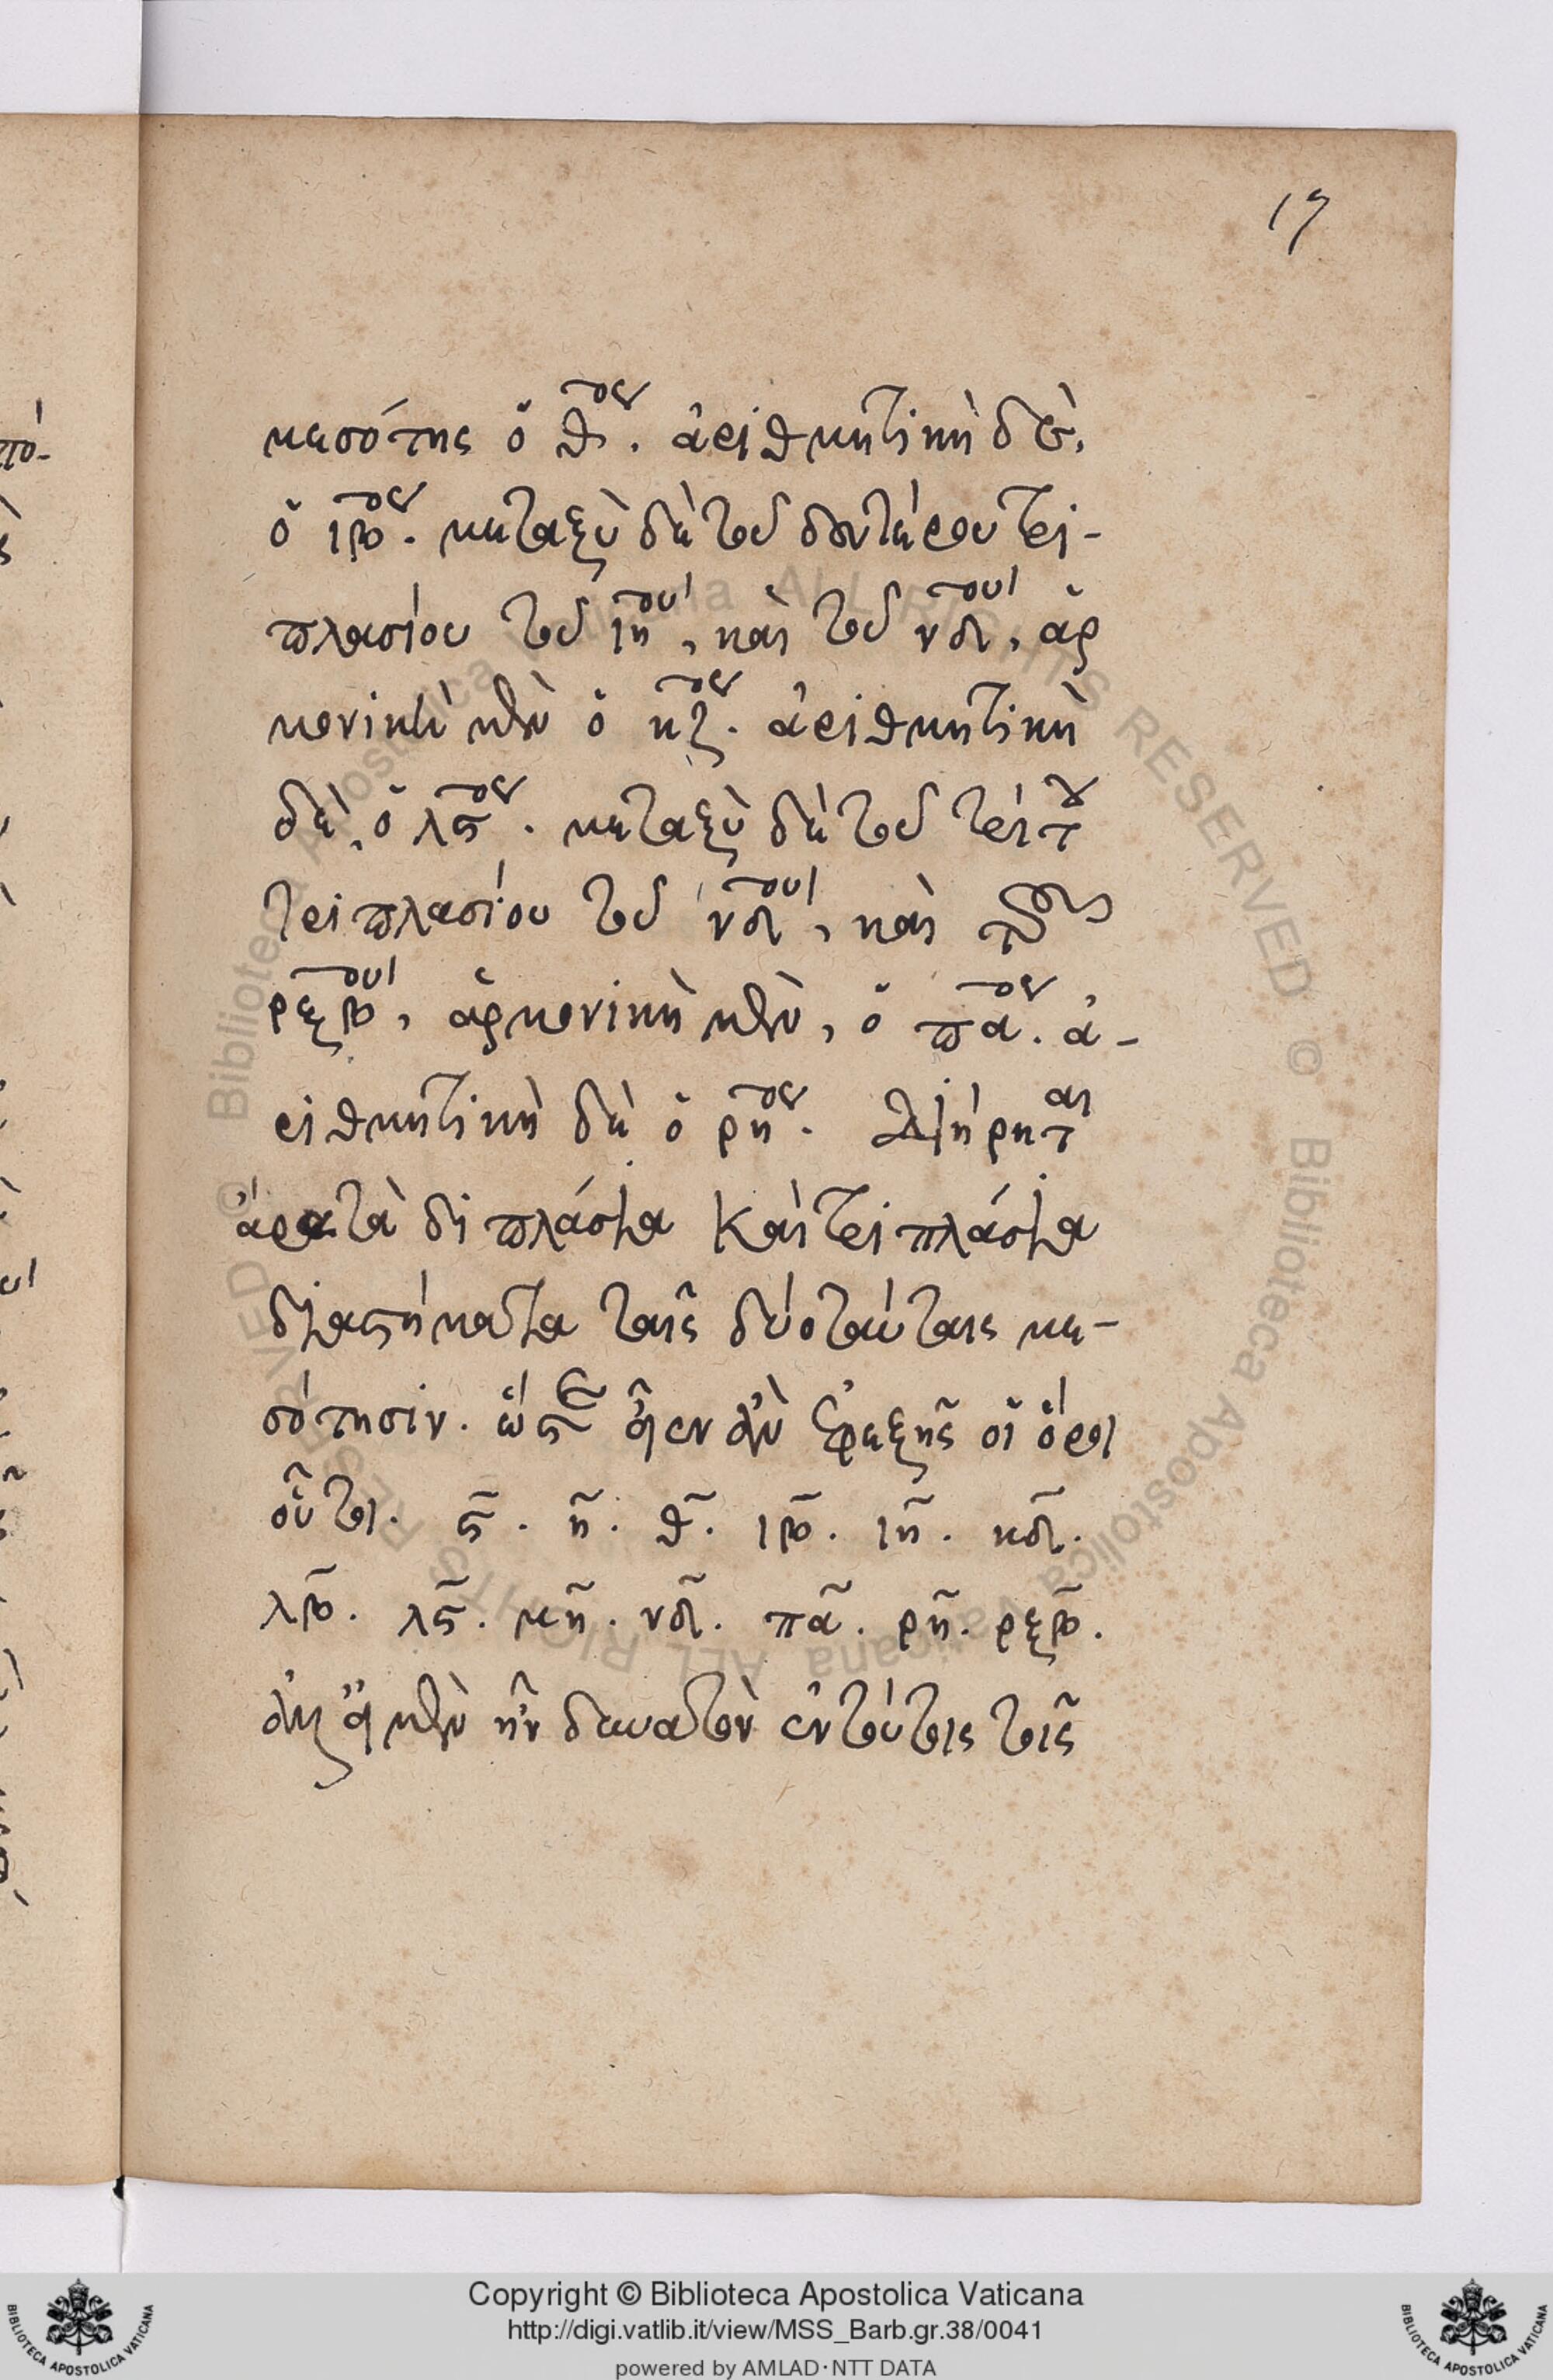 17
μεσότης ὁ θ̅ος. ἀριθμητικὴ δὲ,
ὁ ιβ̅ος. μεταξὺ δὲ τοῦ δευτέρου τρι-
πλασίου τοῦ ιη̅ου, καὶ τοῦ νδ̅ου, ἁρ
μονικὴ μὲν ὁ κζ̅ος. ἀριθμητικὴ
δὲ, ὁ λϛ̅ος. μεταξὺ δὲ τοῦ τρίτου
τριπλασίου τοῦ νδ̅ου, καὶ τοῦ
ρξβ̅ου, ἁρμονικὴ μὲν, ὁ πα̅ος. ἀ-
ριθμητικὴ δὲ ὁ ρη̅ος. διῄρηται
ἄρα τὰ διπλάσια καὶ τριπλάσια
διαστήματα ταῖς δύο ταύταις με-
σότησιν. ὥστε εἶεν ἂν ἐφεξῆς οἱ ὅροι
οὗτοι. ϛ̅. η̅. θ̅. ιβ̅. ιη̅. κδ̅.
λβ̅. λϛ̅. μη̅. νδ̅. πα̅. ρη̅. ρξβ̅.
ἀλλ' εἰ μὲν ἦν δυνατὸν ἐν τούτοις τοῖς
Copyright © Biblioteca Apostolica Vaticana
http://digi.vatlib.it/view/MSS_Barb.gr.38/0041
powered by AMLAD·NTT DATA
BIBLIOTECA APOSTOLICA VATICANA
BIBLIOTECA APOSTOLICA VATICANA
© Biblioteca Apostolica Vaticana ALL RIGHTS RESERVED © Biblioteca Apostolica Vaticana ALL RIGHTS RESERVED